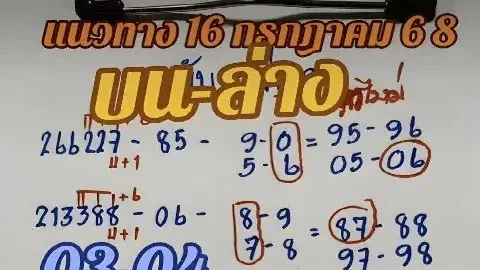 แนวทาง 16 กรกฎาคม 68
บน-ล่าง
266227 - 85 - 9-0 = 95-96
11+1 5-6 05-06
+6
213388 - 06 - 8-9 = 87-88
11+1 7-8 97-98